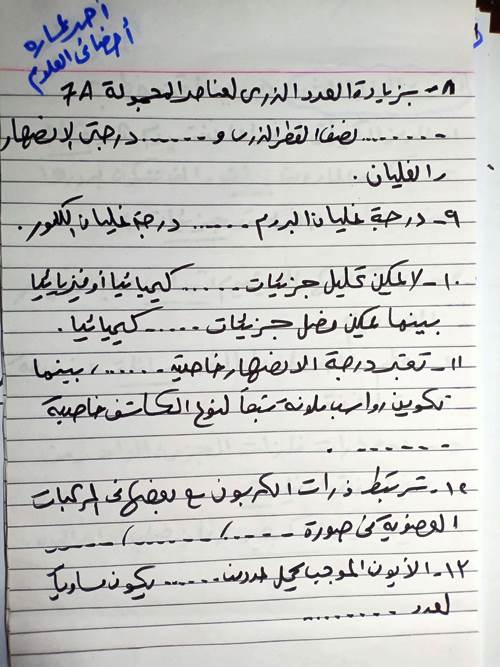 أحمد عماره
أخصائى العلوم
٨- بزيادة العدد الذرى لعناصر المجموعة 7A
........ نصف القطر الذرى و ...... درجتى الإنصهار
والغليان .
٩- درجة غليان البروم ...... درجة غليان الكلور .
١٠- لا يمكن تحليل جزيئات ...... كيميائياً أو فيزيائياً
بينما يمكن فصل جزيئات ...... كيميائياً .
١١- تعتبر درجة الانصهار خاصية ...... ، بينما
تكوين رواسب ملونة تبعاً لنوع الكاشف خاصية
...... .
١٢- ترتبط ذرات الكربون مع بعضها فى المركبات
العضوية فى صورة ..... / ...... / ......
١٣- الأيون الموجب يحمل عدد من ...... يكون مساوياً
لعدد ........